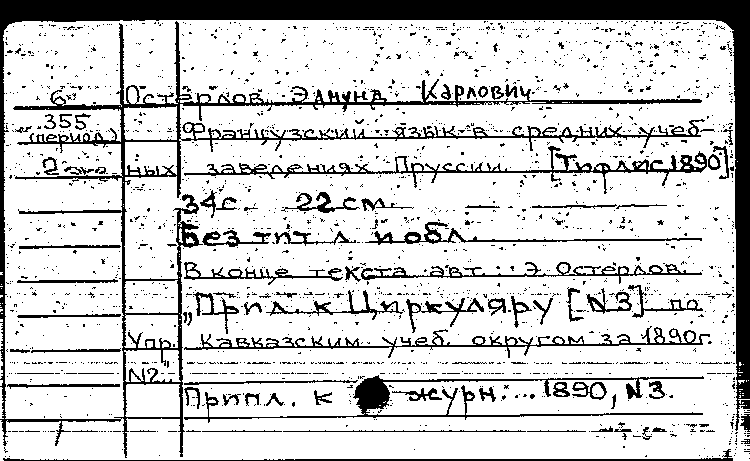 6 Остерлов, Эдмунд Карлович
355 (период.) Французский язык в средних учеб-
2 экз. ных заведениях Пруссии. [Тифлис, 1890]
34 с. 22 см.
Без тит. л. и обл.
В конце текста авт.: Э. Остерлов.
„Прил. к Циркуляру [N3] по
Упр. Кавказским учеб. округом за 1890г.
N2."
Прил. к журн.... 1890, N3.